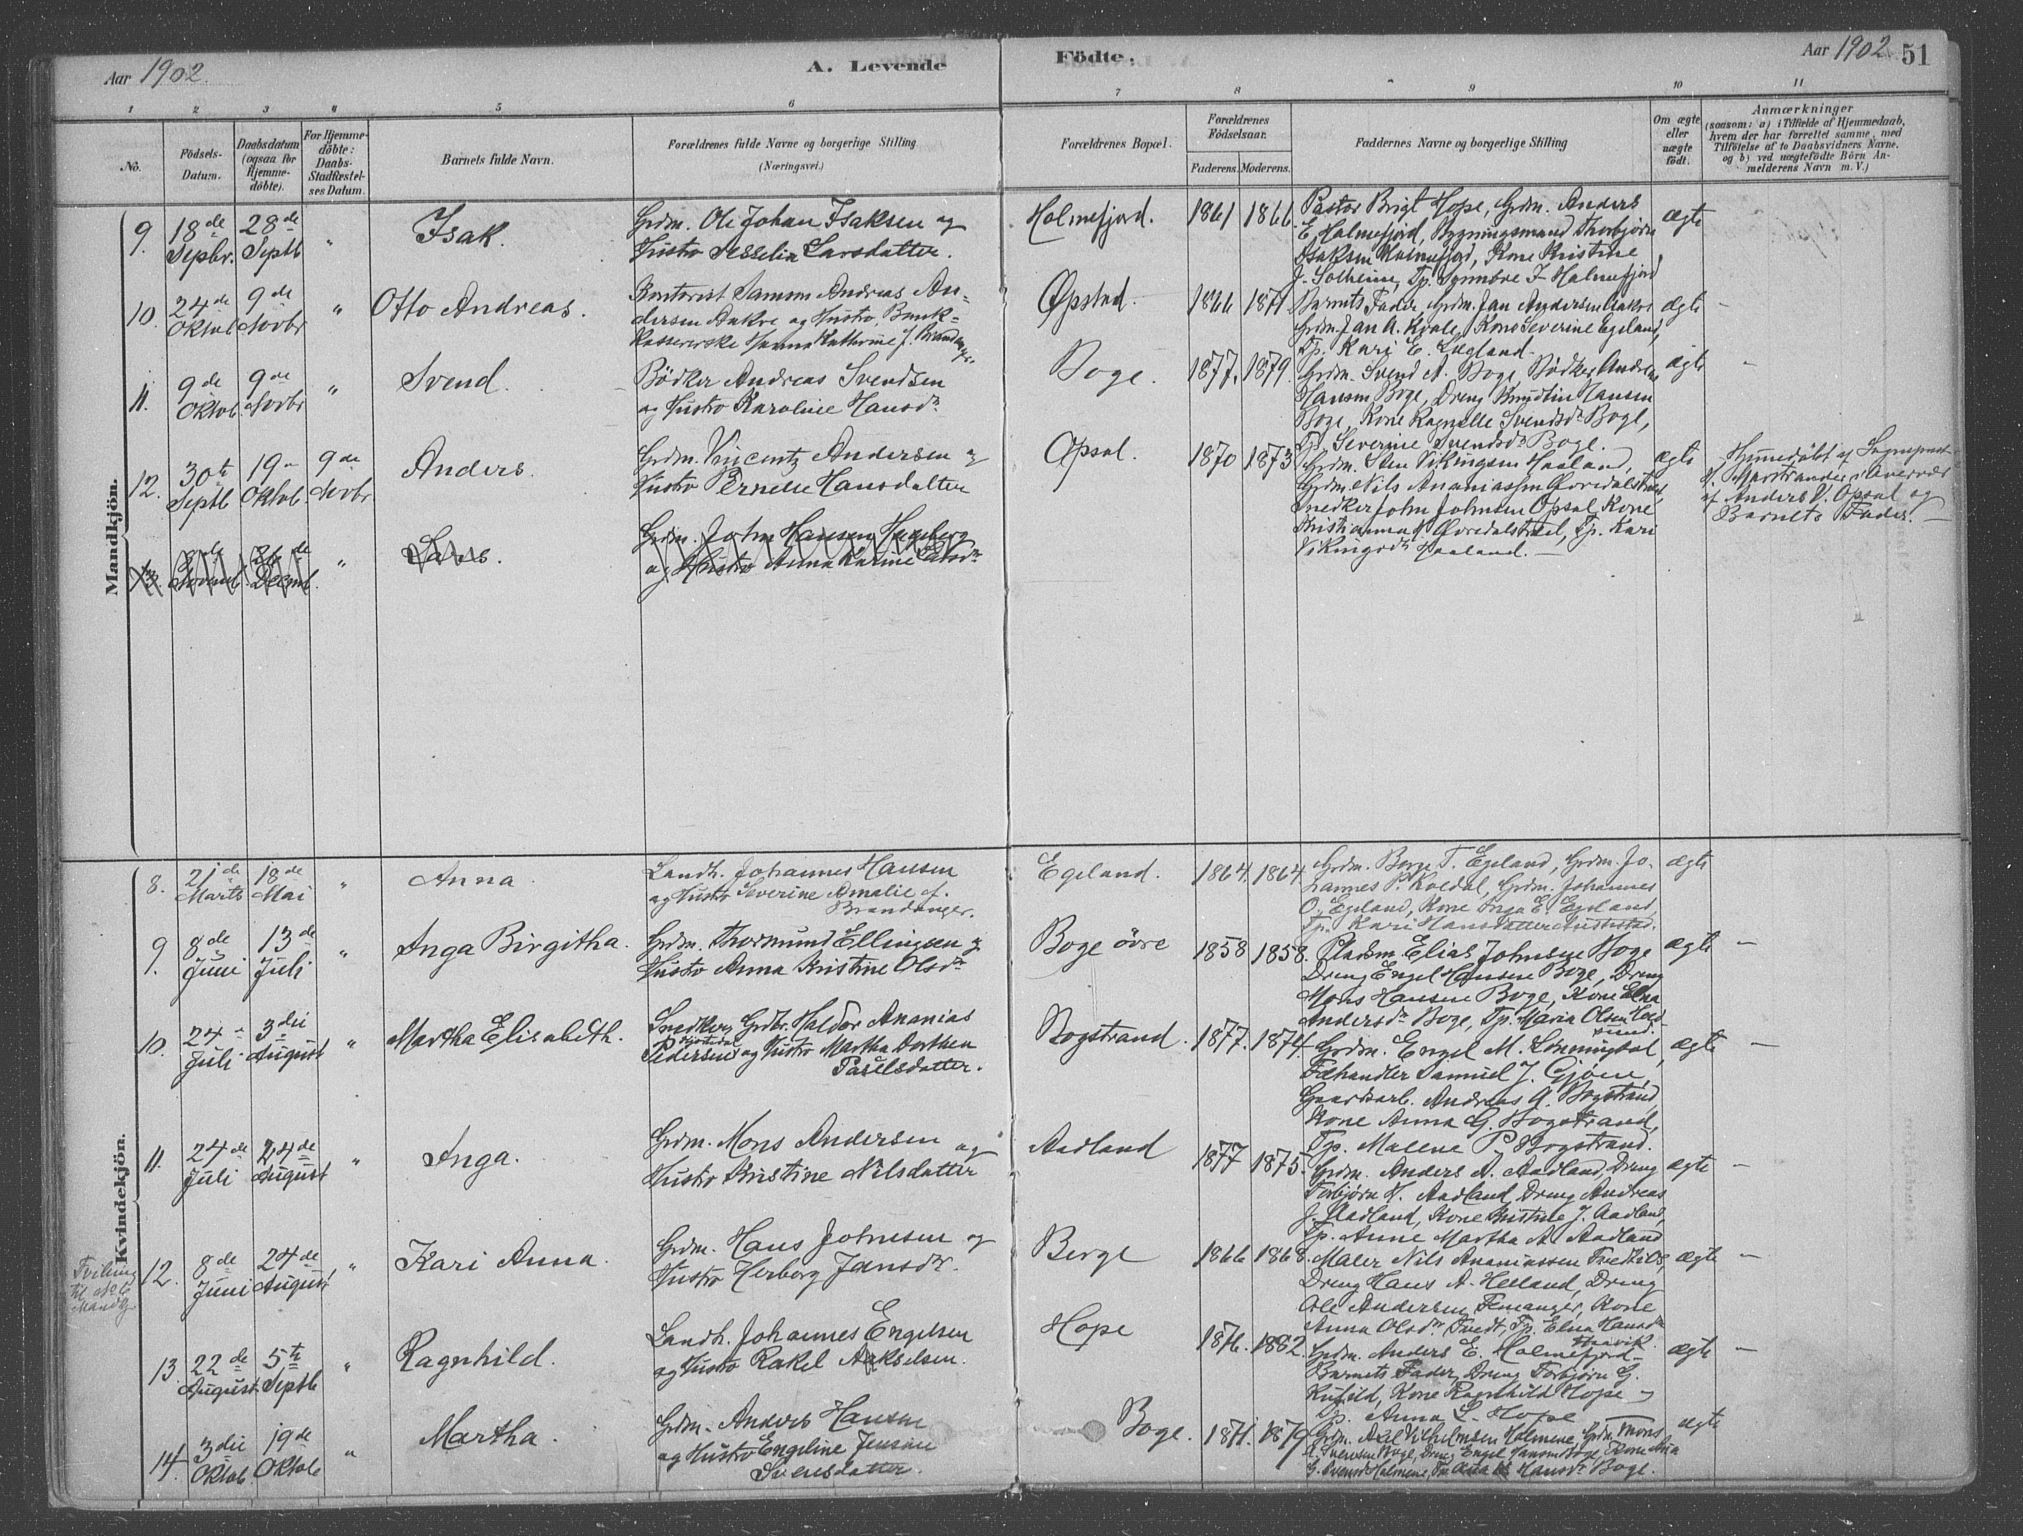 Aar 1902.
A. Levende
Födte.
Aar 1902
51
1 2 3 4 5 6 7 8 9 10 11
No.
Födsels-Datum.
Daabsdatum (ogsaa for Hjemme-döbte).
For Hjemme-döbte: Daabs-Stadfæstel-ses Datum.
Barnets fulde Navn.
Forældrenes fulde Navne og borgerlige Stilling
(Næringsvei.)
Forældrenes Bopæl.
Forældrenes Födselsaar.
Faderens. Moderens.
Faddernes Navne og borgerlige Stilling
Om ægte eller uægte födt.
Anmærkninger
(saasom: a) i Tilfælde af Hjemmedaab,
hvem der har forrettet samme, med
Tilföielse af to Daabsvidners Navne.
og b) ved uægtefödte Börn An-
melderens Navn m. V.)
Mandkjön.
9. 18de Septbr. 28de Septb " Isak.
Grdm. Ole Johan Isaksen og
Hustro Sesselia Larsdatter.
Holmefjord. 1861 1866.
Pastor Brigt Hope, Grdm. Anders
E. Holmefjord, Bygningsmand Thorbjørn
Isaksen Holmefjord, Kone Kristine
J. Solheim, Tp. Synnøve I. Holmefjord
ægte
10. 24de Oktob 9de Novbr " Otto Andreas.
Kontorist Samson Andreas An-
dersen Aakre og Hustro, Bank-
kassererske Hanna Kathrine J. Brandanger.
Opstad. 1866 1871.
Barnets Fader, Grdm. Jan Andersen Aakre
Grdm. Jan A. Kvale, Kone Severine Egeland,
Tp. Kari E. Lægland.
ægte —
11. 9de Oktob. 9de Novbr " Svend.
Bödker Andreas Svendsen
og Hustro Karoline Hansdr.
Boge. 1877. 1879.
Grdm. Svend A. Boge, Bödker Andreas
Hansen Boge, Dreng Knudtin Hansen
Boge, Kone Ragnelle Svendsdr Boge,
Tp. Severine Svendsdr Boge.
ægte —
12. 30te Septb 19de Oktob. 9de Novbr Anders.
Grdm. Vincentz Andersen og
Hustro Pernelle Hansdatter
Opsal. 1870 1873
Grdm. Sten Vikingsen Haaland,
Grdm Nils Ananiassen Øvredalstveit,
Snedker John Johnsen Opsal, Kone
Kristianna Øvredalstveit, Tp. Kari
Vikingsdr Haaland. —
ægte
Hjemedöbt af Sognepræst
Mortrander i Overvær
af Anders V. Opsal og
Barnets Fader. —
13. Novemb. Decemb. " Lars.
Grdm. John Hansen Hageberg
og Hustro Anna Karine Larsdr
Kvindekjön.
8. 21de Marts 18de Mai " Anna
Landh. Johannes Hansen
og Hustro Severine Amalie af.
Brandanger.
Egeland. 1864. 1864
Grdm. Børge T. Egeland, Grdm. Jo-
hannes P. Koldal, Grdm. Johannes
O. Egeland, Kone Inga E. Egeland,
Tp. Kari Hansdatter
ægte
9. 8de Juni 13de Juli " Inga Birgitha.
Grdm. Thormund Ellingsen og
Hustro Anna Kristine Olsdr
Boge övre 1858 1858.
Pladsm. Elias Johnsen Boge
Dreng Engel Hansen Boge, Dreng
Mons Hansen Boge, Kone Elna
Andersdr Boge, Tp. Maria Olsen
ægte —
10. 24de Juli 3die August " Martha Elisabeth.
Snedker, Grdbr. Haldor Ananias
Pedersen og Hustro Martha Dorthea
Paulsdatter.
Bogstrand. 1877. 1874
Grdm. Engel M. Lønningdal,
Fæhandler Samuel J. Gjøen,
Gaardkarl. Andreas A. Bogstrand,
Kone Anna G. Bogstrand,
Tp. Malene P. Bogstrand.
ægte —
11. 24de Juli 24de August " Inga.
Grdm. Mons Andersen og
Hustro Kristine Nilsdatter
Aadland 1877 1875
Grdm. Anders A. Aadland, Dreng
Torbjørn H. Aadland, Dreng Andreas
J. Aadland, Kone Kristine J. Aadland,
Tp. Anne Martha A. Aadland
ægte —
Tvilling til No 6 Mandkj.
12. 8de Juni 24de August " Kari Anna.
Grdm. Hans Johnsen og
Hustro Herborg Jansdr.
Berge 1866 1868.
Maler Nils Ananiassen Tvedt,
Dreng Hans A. Helland, Dreng
Ole Andersen Femanger, Kone
Anna Olsdr Tvedt, Tp. Elna Hansdr
Haavik.
ægte —
13. 22de August. 5te Septb " Ragnhild.
Landh. Johannes Engelsen
og Hustro Rakel Akselsen.
Hope 1876. 1882.
Grdm. Anders E. Holmefjord
Barnets Fader, Dreng Torbjørn G.
Kufild, Kone Ragnhild Hope og
Tp. Anna L. Hope
ægte —
14. 3die Oktob 19de Oktob " Martha.
Grdm. Anders Hansen
og Hustro Engeline Jensine
Svensdatter.
Boge. 1871. 1879
Grdm. Axel Vilhelmsen Holmene, Grdm. Mons
Svendsen Boge, Dreng Engel Hansen Boge, Kone Ana
G. Svensdr Holmene, Tp. Hansdr Boge.
ægte